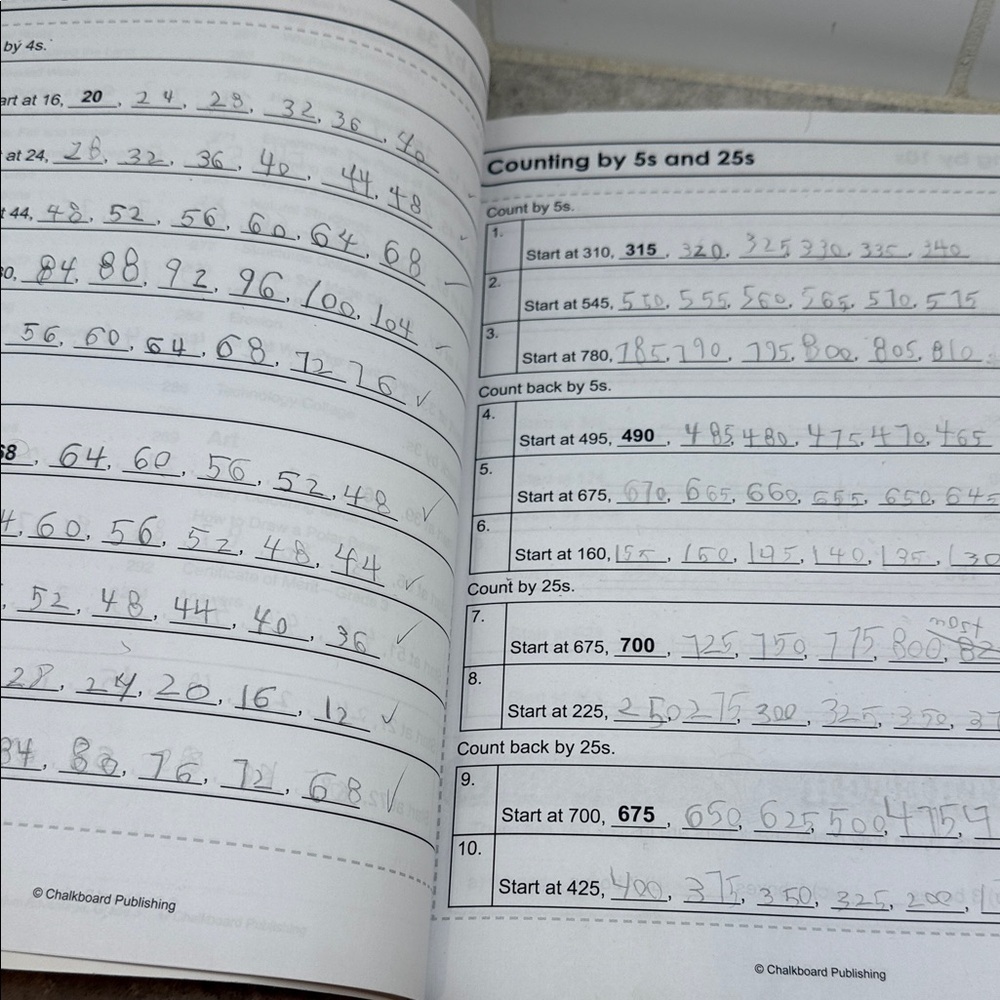 by 4s.
art at 16, 20, 24, 28, 32, 36, 40
at 24, 28, 32, 36, 40, 44, 48
t 44, 48, 52, 56, 60, 64, 68
0, 84, 88, 92, 96, 100, 104
56, 60, 64, 68, 72 76
68, 64, 60, 56, 52, 48
4, 60, 56, 52, 48, 44
, 52, 48, 44, 40, 36
28, 24, 20, 16, 12
84, 80, 76, 72, 68
© Chalkboard Publishing
Counting by 5s and 25s
Count by 5s.
1. Start at 310, 315, 320, 325, 330, 335, 340
2. Start at 545, 550, 555, 560, 565, 570, 575
3. Start at 780, 785, 790, 795, 800, 805, 810
Count back by 5s.
4. Start at 495, 490, 485, 480, 475, 470, 465
5. Start at 675, 670, 665, 660, 655, 650, 645
6. Start at 160, 155, 150, 145, 140, 135, 130
Count by 25s.
7. Start at 675, 700, 725, 750, 775, 800, 82
8. Start at 225, 250 275, 300, 325, 350, 37
Count back by 25s.
9. Start at 700, 675, 650, 625, 500, 475, 4
10. Start at 425, 400, 375, 350, 325, 200, 1
© Chalkboard Publishing